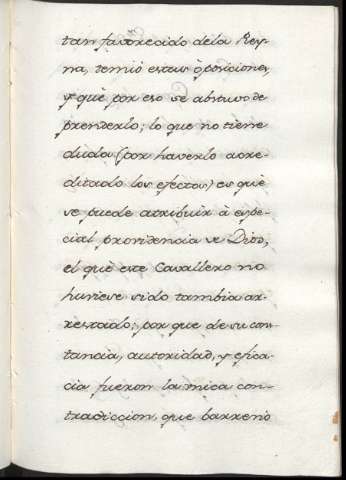 tan favorecido dela Rey-
na, temió estas oposiciones,
y què por eso se abstuvo de
prenderlo; lo que no tiene
duda (por haverlo acre-
ditado los efectos) es què
se puede atribuir à espe-
cial providencia de Dios,
el què este Cavallero no
huviese sido tambien ar-
restado; por que de su cons-
tancia, autoridad, y efica-
cia fueron la unica con-
tradiccion, que barrenó